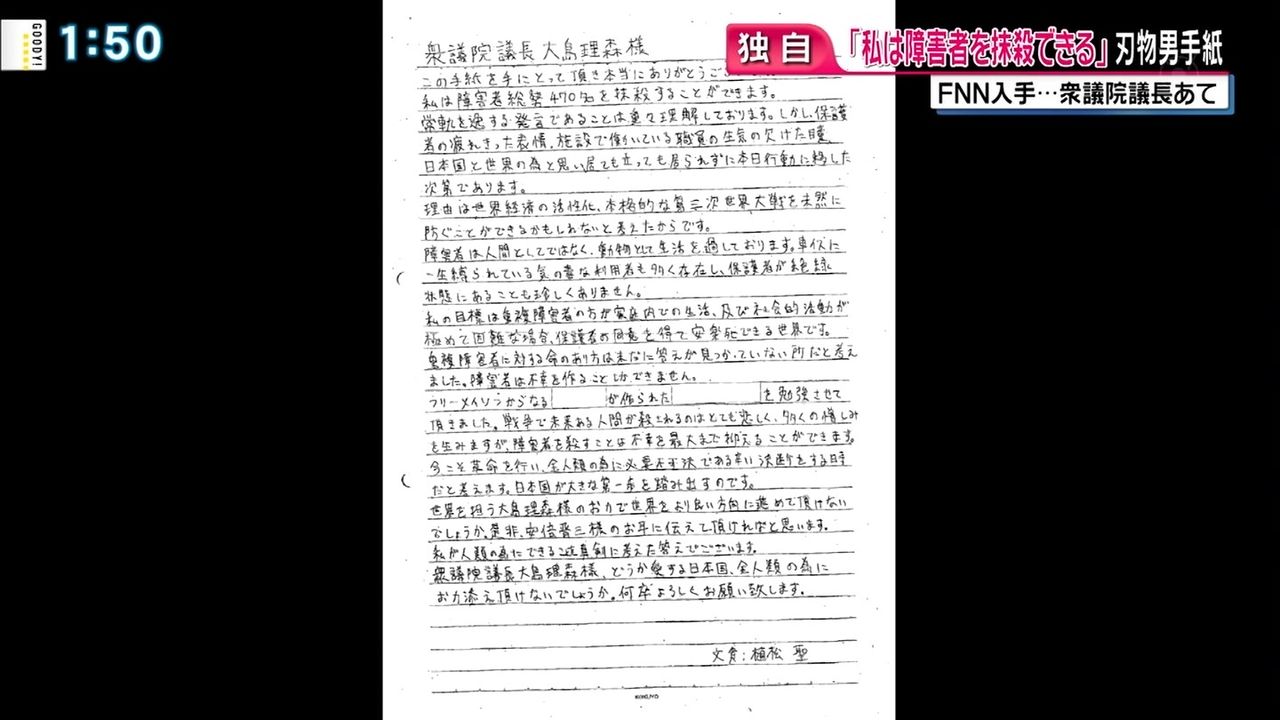 GOODY!
1:50
独自
「私は障害者を抹殺できる」刃物男手紙
FNN入手…衆議院議長あて
衆議院議長大島理森様
この手紙を手にとって頂き本当にありがとうござ
私は障害者総勢470名を抹殺することができます。
常軌を逸する発言であることは重々理解しております。しかし、保護
者の疲れきった表情、施設で働いている職員の生気の欠けた瞳、
日本国と世界の為と思い居ても立っても居られずに本日行動に移した
次第であります。
理由は世界経済の活性化、本格的な第三次世界大戦を未然に
防ぐことができるかもしれないと考えたからです。
障害者は人間としてではなく、動物として生活を過しております。車イスに
一生縛られている気の毒な利用者も多く存在し、保護者が絶縁
状態にあることも珍しくありません。
私の目標は重複障害者の方が家庭内での生活、及び社会的活動が
極めて困難な場合、保護者の同意を得て安楽死できる世界です。
重複障害者に対する命のあり方は未だに答えが見つかっていない所だと考え
ました。障害者は不幸を作ることしかできません。
フリーメイソンからなる が作られた を勉強させて
頂きました。戦争で未来ある人間が殺されるのはとても悲しく、多くの憎しみ
を生みますが、障害者を殺すことは不幸を最大まで抑えることができます。
今こそ革命を行い、全人類の為に必要不可欠である辛い決断をする時
だと考えます。日本国が大きな第一歩を踏み出すのです。
世界を担う大島理森様のお力で世界をより良い方向に進めて頂けない
でしょうか。是非、安倍晋三様のお耳に伝えて頂ければと思います。
私が人類の為にできることを真剣に考えた答えでございます。
衆議院議長大島理森様、どうか愛する日本国、全人類の為に
お力添え頂けないでしょうか。何卒よろしくお願い致します。
文責：植松 聖
KOKUYO